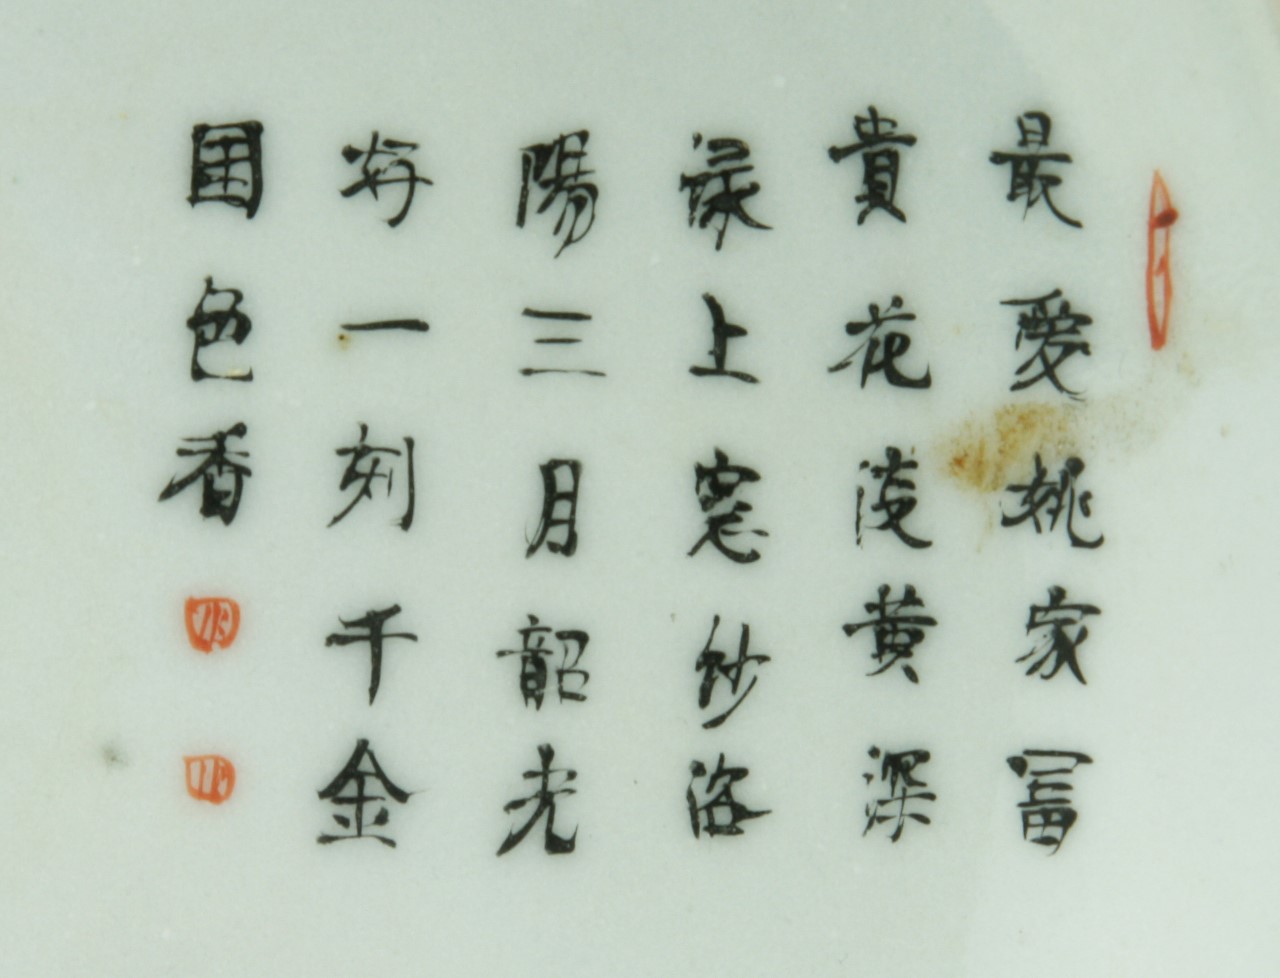 最愛姚家冨
貴花淺黄深
綠上窓紗洛
陽三月韶光
好一刻千金
国色香